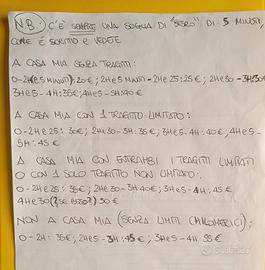 N.B.: C'È SEMPRE UNA SOGLIA DI "SGRO" DI 5 MINUTI,
COME È SCRITTO E VEDETE
A CASA MIA SENZA TRAGITTI:
0-2H(e 5 MINUTI): 20€; 2H e 5 MINUTI - 2H e 25: 25€; 2H e 30 - 3H: 30€
3H e 5 - 4H: 35€; 4H e 5 - 5H: 40€
A CASA MIA CON 1 TRAGITTO LIMITATO:
0-2H e 25: 30€; 2H e 30 - 3H: 35€; 3H e 5 - 4H: 40€; 4H e 5 -
5H: 45€
A CASA MIA CON ENTRAMBI I TRAGITTI LIMITATI
O CON 1 SOLO TRAGITTO NON LIMITATO:
0-2H e 25: 35€; 2H e 30 - 3H 40€; 3H e 5 - 4H: 45€
4H e 30 50€
NON A CASA MIA (SENZA LIMITI CHILOMETRICI):
0-2H: 35€; 2H e 5 - 3H: 45€; 3H e 5 - 4H 55€
subito